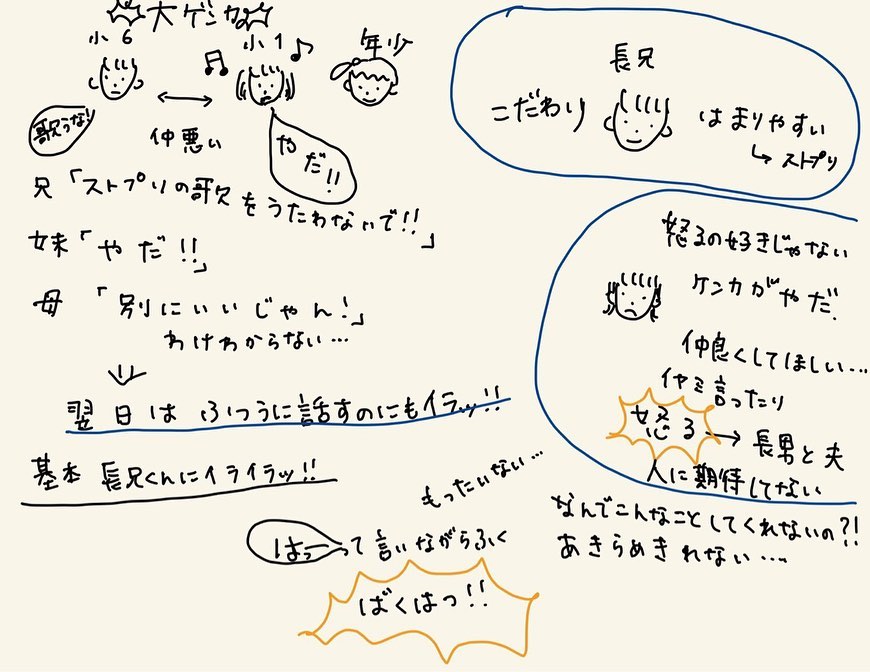 大ゲンカ
小6
小1
年少
歌うな!!
仲悪い
やだ!!
兄「ストプリの歌をうたわないで!!」
妹「やだ!!」
母「別にいいじゃん!」
わけわからない…
翌日はふつうに話すのにもイラッ!!
基本長兄くんにイライラッ!!
もったいない…
はーって言いながらふく
ばくはつ!!
長兄
こだわり
はまりやすい
↳ストプリ
怒るの好きじゃない
ケンカがやだ.
仲良くしてほしい…
イヤミ言ったり
怒る→長男と夫
人に期待してない
なんでこんなことしてくれないの?!
あきらめきれない…